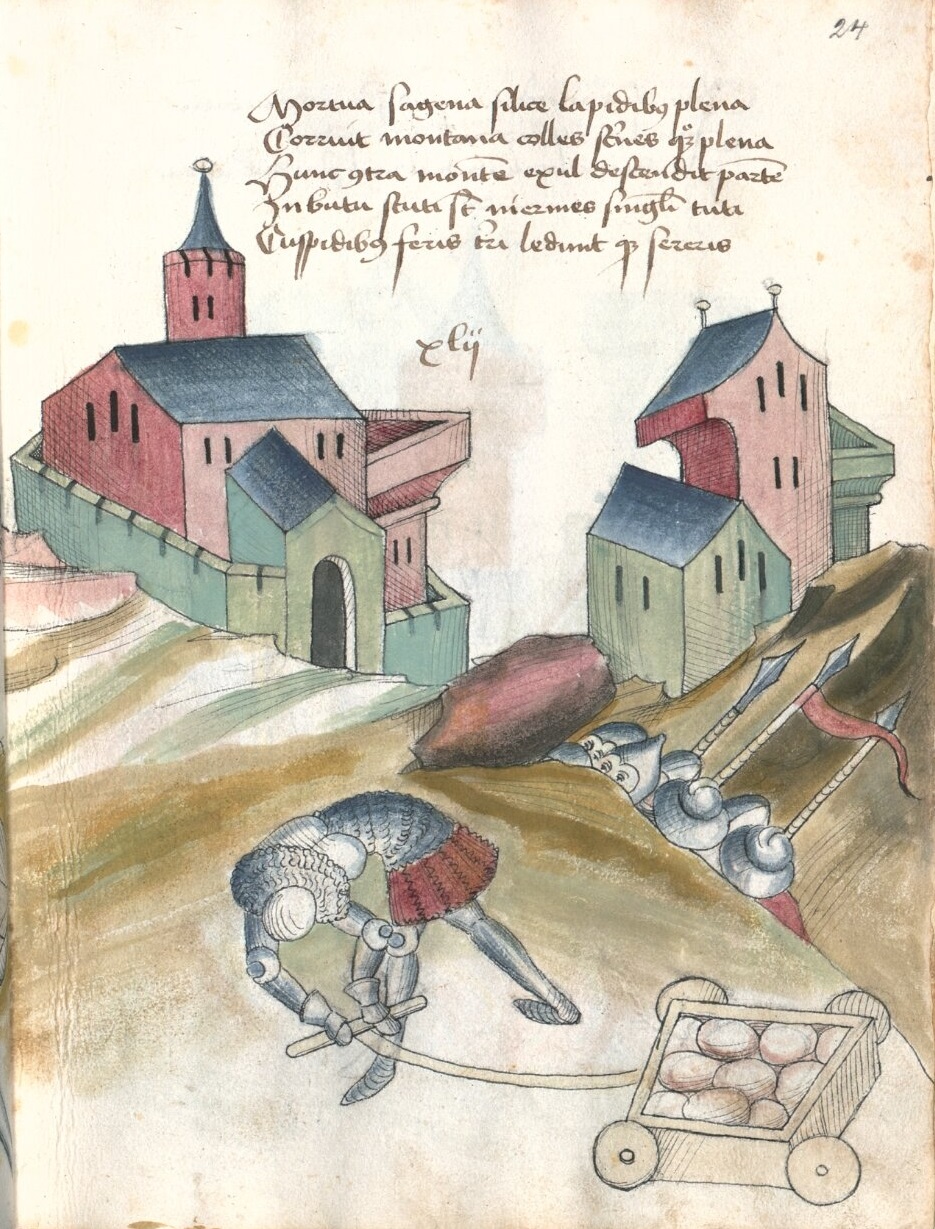 24
Mortua sagena silice lapidibꝫ plena
Corruit montana colles scīnes qꝫ plena
Hunc ꝯtra montē exul descendit partē
In butu scuti st̄ inermes singlī tuti
Cuspidibꝫ feris tr̄i ledunt ꝙ sereris
xlij